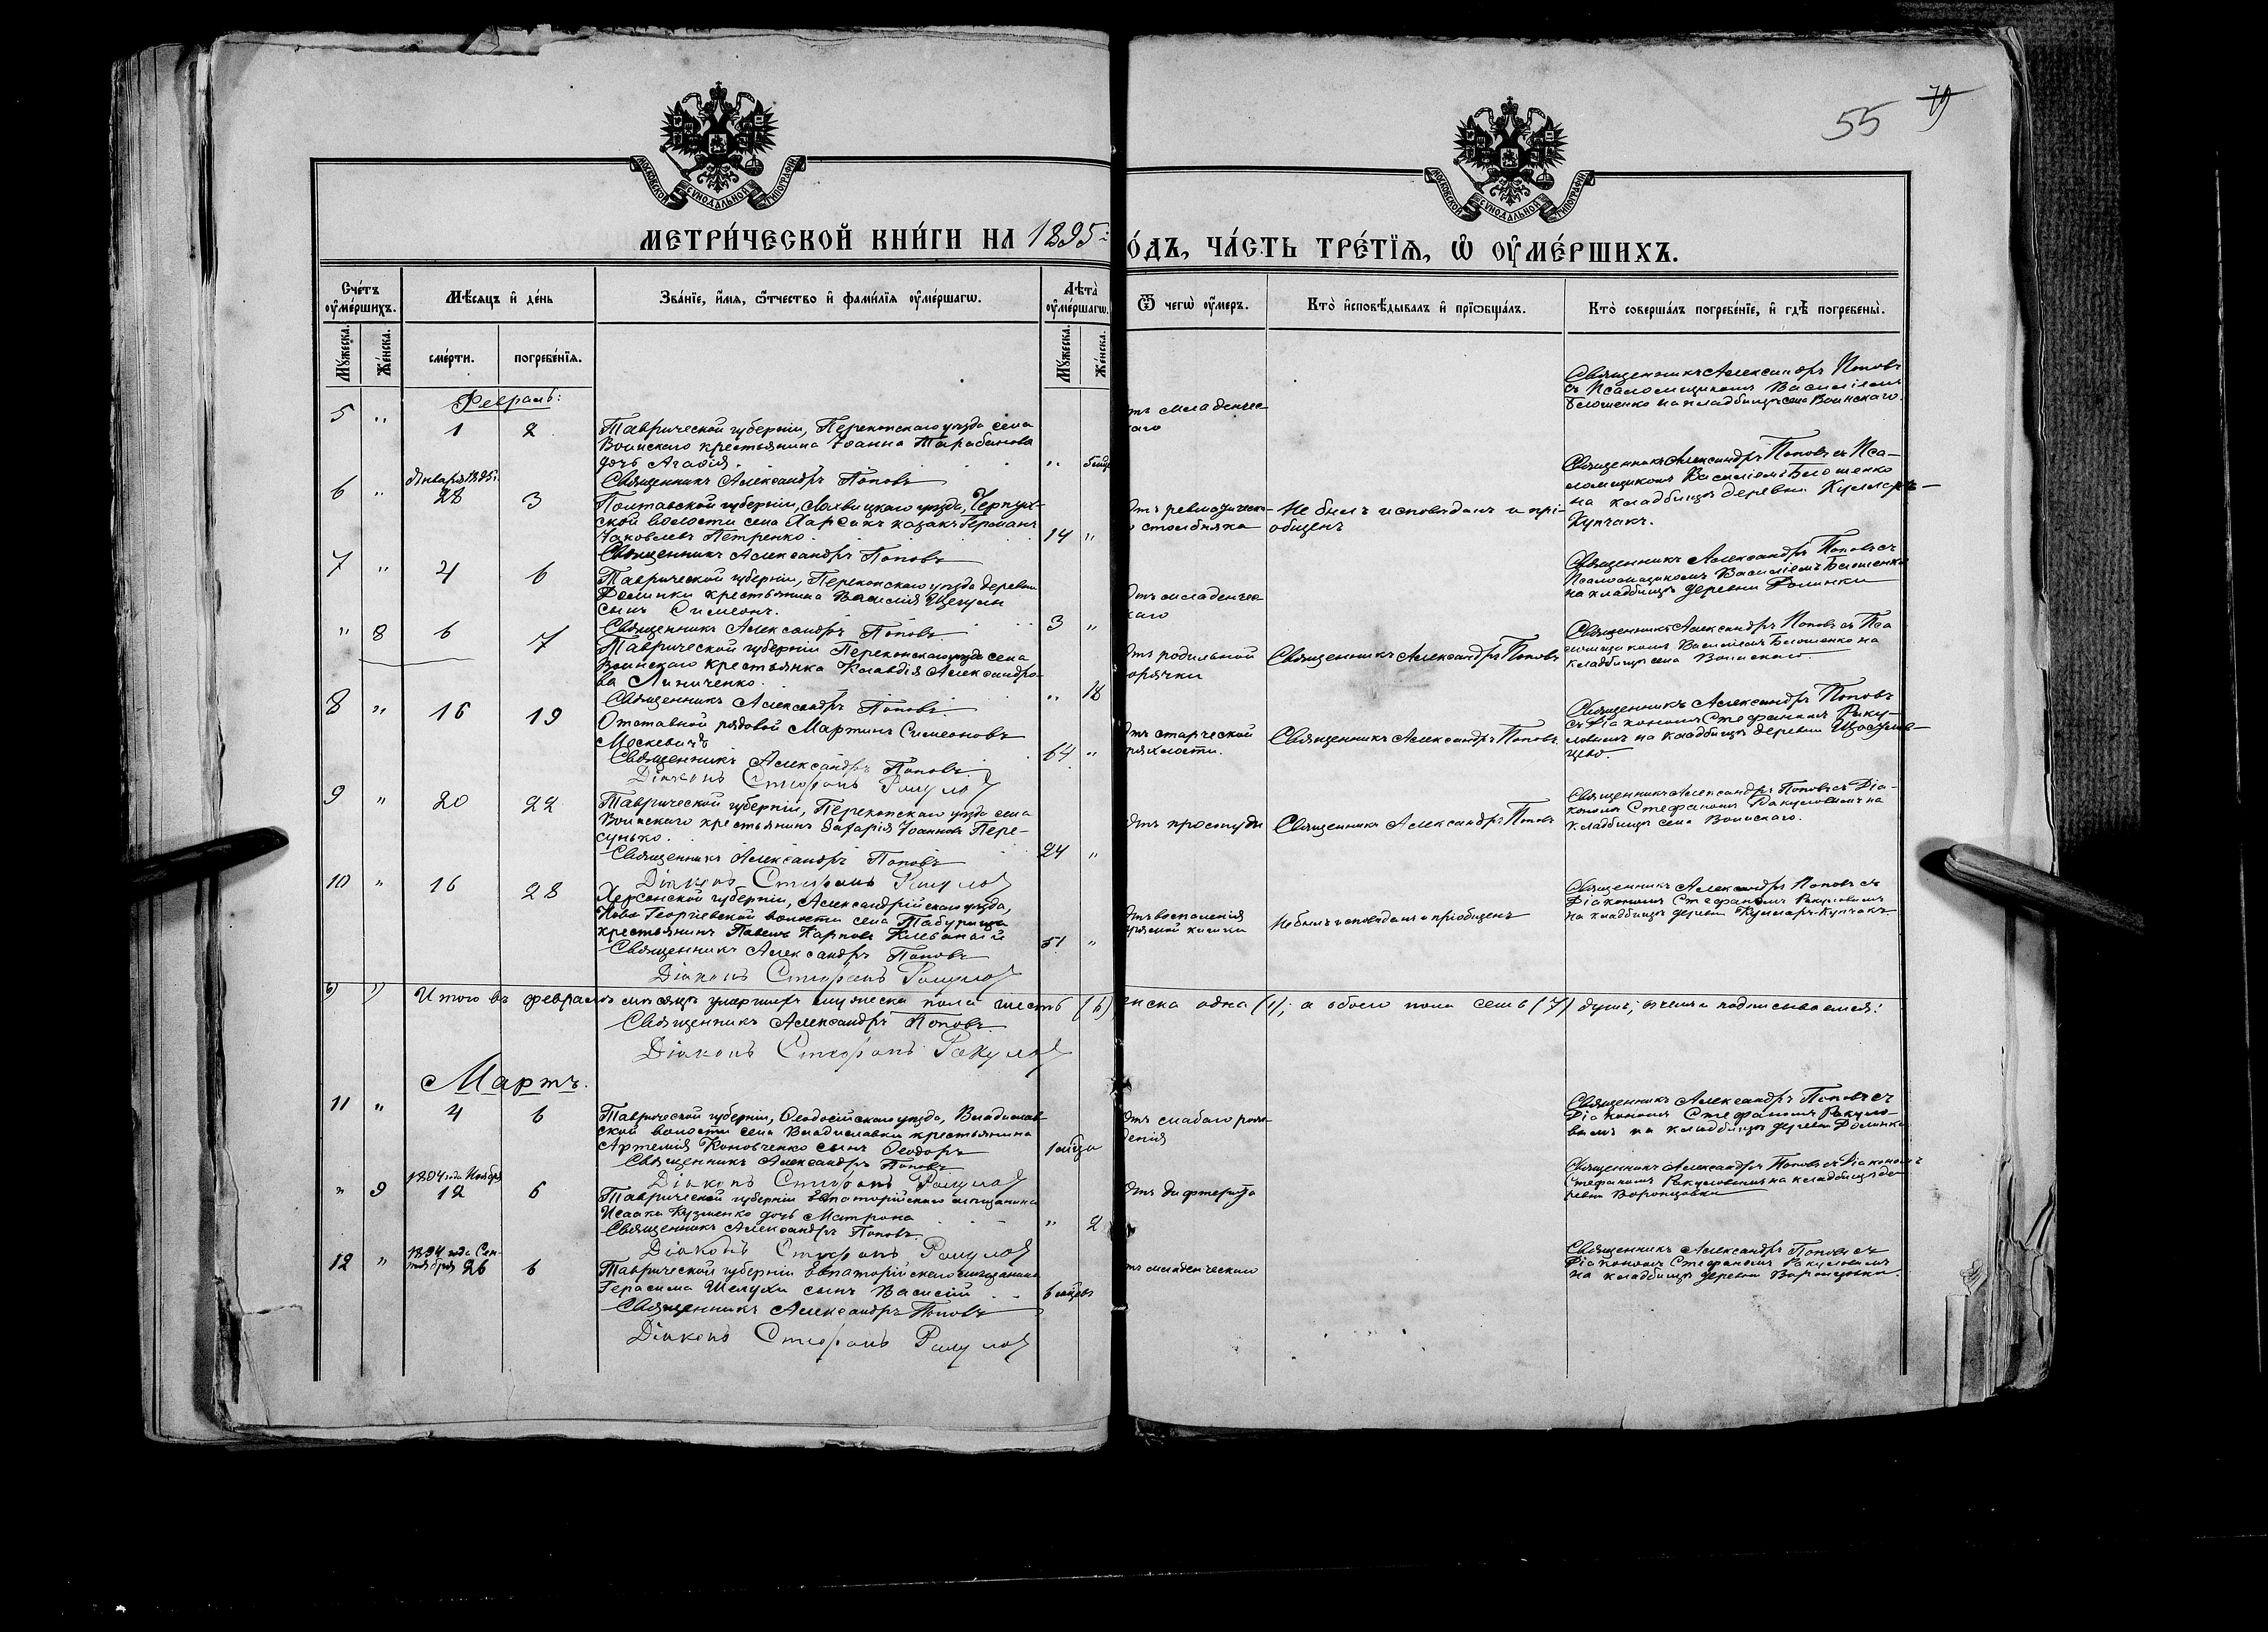 55
МЕТРИ́ЧЕСКОЙ КНИ́ГИ НА 1895
О́ДЪ, ЧА́СТЬ ТРЕ́ТЇѦ, Ѡ҆ ОУ҆МЕ́РШИХЪ.
Сче́тъ оу҆ме́ршихъ.
Мѣ́сяцъ и҆ де́нь
Зва́нїе, и҆́мѧ, ѻ҆́тчество и҆ фами́лїѧ оу҆ме́ршагѡ.
Лѣ́та оу҆ме́ршагѡ.
Ѿ чегѡ̀ оу҆́меръ.
Кто̀ и҆сповѣ́дывалъ и҆ прїѡбща́лъ.
Кто̀ соверша́лъ погребе́нїе, и҆ гдѣ̀ погребены̀.
Мꙋ́жеска. Же́нска. сме́рти. погребе́нїѧ. Мꙋ́жеска. Же́нска.
Февраль:
5 " 1 2
Таврической губерніи, Перекопскаго уѣзда села
Воинскаго крестьянина Іоанна Тарабанова
дочь Агафія
Священникъ Александръ Поповъ
тъ младенчес
каго
Священникъ Александръ Поповъ
съ Псаломщикомъ Василіемъ
Бѣлошенко на кладбищѣ села Воинскаго.
Января 1895 г.
6 " 28 3
Полтавской губерніи, Лохвицкаго уѣзда,
ской волости села Харсикъ казакъ Германъ
Іаковлевъ Петренко. 14 "
Священникъ Александръ Поповъ
Отъ ревматическа-
столбняка
Не былъ исповѣданъ и прі-
общенъ
Священникъ Александръ Поповъ съ Пса-
ломщикомъ Василіемъ Бѣлошенко
на кладбищѣ деревни Кулларъ-
Кипчакъ.
7 " 4 6
Таврической губерніи, Перекопскаго уѣзда деревни
крестьянина Василія
сынъ Симеонъ. 3 "
Священникъ Александръ Поповъ
Отъ младенчес
каго
Священникъ Александръ Поповъ съ
Псаломщикомъ Василіемъ Бѣлошенко
на кладбищѣ деревни
" 8 6 7
Таврической губерніи Перекопскаго уѣзда села
Воинскаго крестьянка Клавдія Александро-
ва Линиченко " 18
Священникъ Александръ Поповъ
Отъ родильной
орячки
Священникъ Александръ Поповъ
Священникъ Александръ Поповъ съ Пса
ломщикомъ Василіемъ Бѣлошенко на
кладбищѣ села Воинскаго.
8 " 16 19
Отставной рядовой Мартинъ Симеоновъ
Москевичъ 64 "
Священникъ Александръ Поповъ
Діаконъ Стефанъ Ракуловъ
Отъ старческой
ряхлости.
Священникъ Александръ Поповъ
Священникъ Александръ Поповъ
съ Діакономъ Стефаномъ Раку-
ловымъ на кладбищѣ деревни
9 " 20 22
Таврической губерніи, Перекопскаго уѣзда села
Воинскаго крестьянинъ Захарія Іоанновъ Пере-
сунько. 24 "
Священникъ Александръ Поповъ
Діаконъ Стефанъ Ракуловъ
Отъ простуды
Священникъ Александръ Поповъ
Священникъ Александръ Поповъ съ Діа-
кономъ Стефаномъ Ракуловымъ на
кладбищѣ села Воинскаго.
10 " 16 28
Херсонской губерніи, Александрійскаго уѣзда,
Ново Георгіевской волости села Табурища
крестьянинъ Павелъ Карповъ 51 "
Священникъ Александръ Поповъ
Діаконъ Стефанъ Ракуловъ
Отъ воспаленія
кишки
Не былъ исповѣданъ и пріобщенъ
Священникъ Александръ Поповъ съ
Діакономъ Стефаномъ Ракуловымъ
на кладбищѣ деревни Кулларъ-Кипчакъ
6) 1) Итого въ февралѣ мѣсяцѣ умершихъ мужеска пола шесть (6) енска одна (1), а обоего пола семь (7) душъ, въ чемъ и подписываемся:
Священникъ Александръ Поповъ
Діаконъ Стефанъ Ракуловъ
Мартъ.
11 " 4 6
Таврической губерніи, Ѳеодосійскаго уѣзда, Владислав-
ской волости села Владиславки крестьянина
Артемія Коновченко сынъ Ѳеодоръ
Священникъ Александръ Поповъ
Діаконъ Стефанъ Ракуловъ
Отъ слабаго рож-
денія
Священникъ Александръ Поповъ съ
Діакономъ Стефаномъ Ракуло-
вымъ на кладбищѣ деревни
1894 года Ноября
" 9 12 6
Таврической губерніи Евпаторійскаго мѣщанина
Исаака Кузменко дочь Матрона " 2
Священникъ Александръ Поповъ
Діаконъ Стефанъ Ракуловъ
Отъ дифтерита
Священникъ Александръ Поповъ съ Діакономъ
Стефаномъ Ракуловымъ на кладбищѣ де-
ревни Воронцовки
1894 года Сен-
тября
12 " 26 6
Таврической губерніи Евпаторійскаго мѣщанина
Герасима Шелухи сынъ Василій
Священникъ Александръ Поповъ
Діаконъ Стефанъ Ракуловъ
тъ младенческаго
Священникъ Александръ Поповъ съ
Діакономъ Стефаномъ Ракуловымъ
на кладбищѣ деревни Воронцовки.